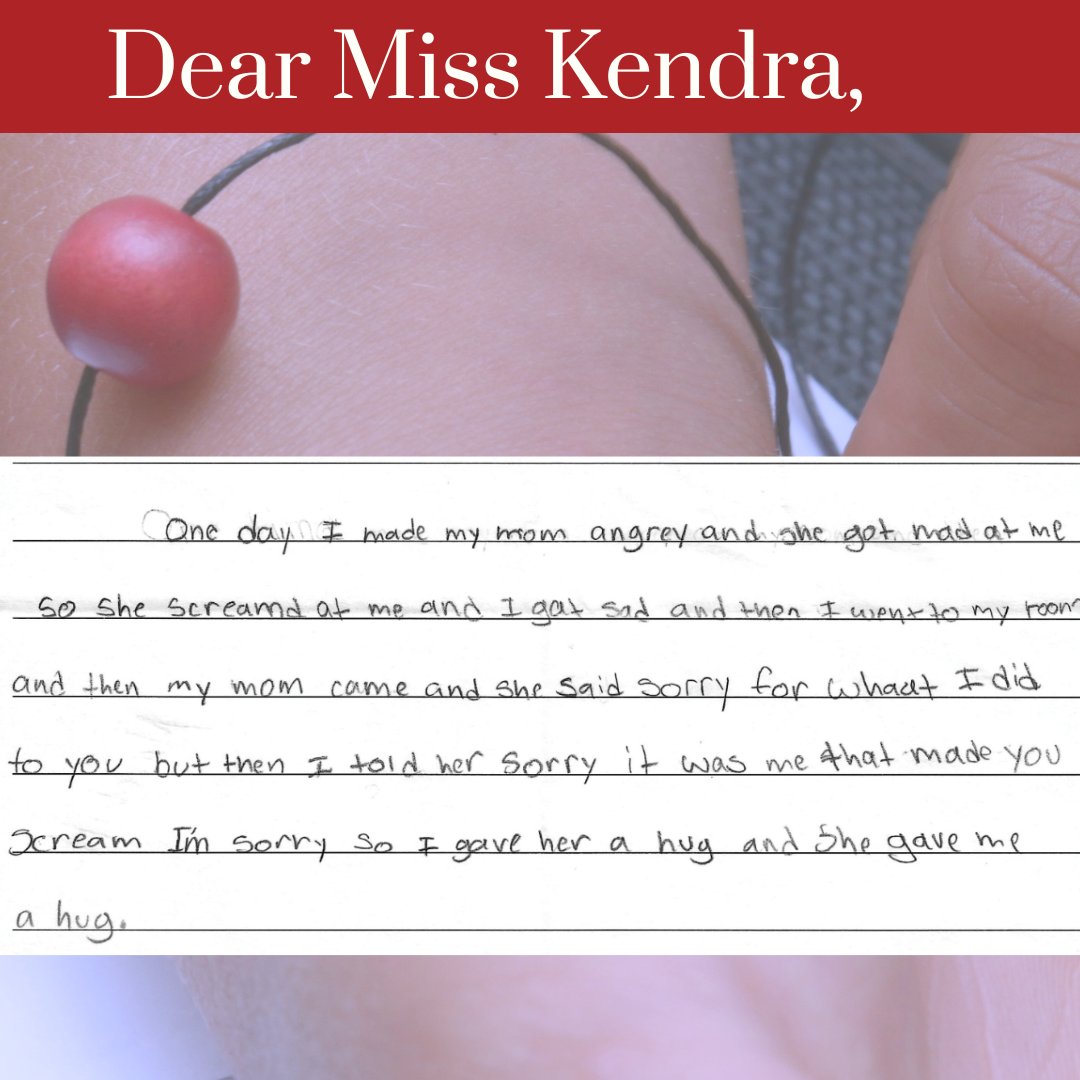 Dear Miss Kendra,
One day I made my mom angrey and she got mad at me
so she screamd at me and I gat sad and then I went to my room
and then my mom came and she said sorry for whaat I did
to you but then I told her sorry it was me that made you
scream I'm sorry so I gave her a hug and she gave me
a hug.